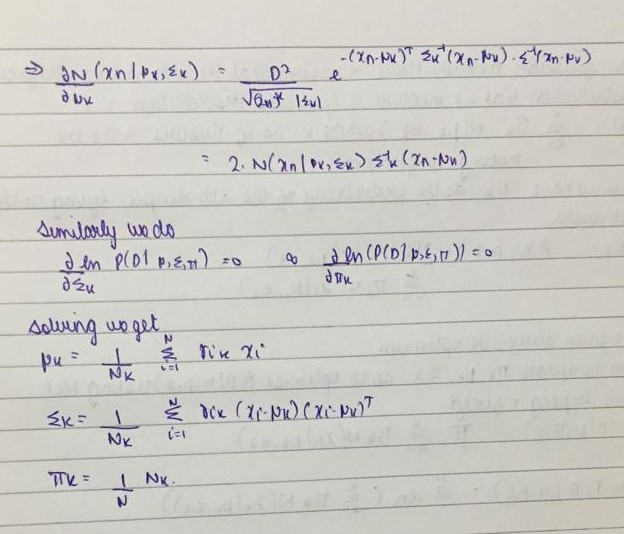 ⇒ ∂N (xn | μk, Σk) = D² / √(2π)^k |Σk| e^-(xn-μk)^T Σk^-1 (xn-μk) · Σ^-1 (xn-μk)
∂μk
= 2. N(xn | μk, Σk) Σk^-1 (xn-μk)
Similarly we do
∂/∂Σk ln P(D | μ,Σ,π) = 0 & ∂/∂πk ln(P(D | μ,Σ,π)) = 0
solving we get
μk = 1/Nk Σ_{i=1}^{N} γik xi
Σk = 1/Nk Σ_{i=1}^{N} γik (xi-μk) (xi-μk)^T
πk = 1/N Nk.